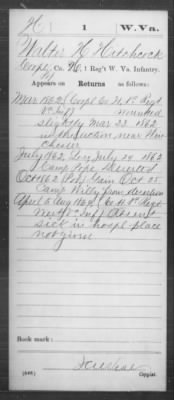 H 1 W.Va.
Walter H Hitchcock
Corpl, Co. H, 1 Reg't W. Va. Infantry.
Appears on Returns as follows:
Mar 1862 Corpl Co H. 1st Regt
Va Inf wounded
slightly Mar 23 1862
in the action near Win
chester
July 1862, Loss July 24 1862
Camp Pope Deserted
Oct 1862 Gain Oct 25
Camp Willy from desertion
April & Aug 1864, Co H. 1st Regt
West Va Inf Absent
sick in hospl place
not given
Book mark:
(646) Copyist.